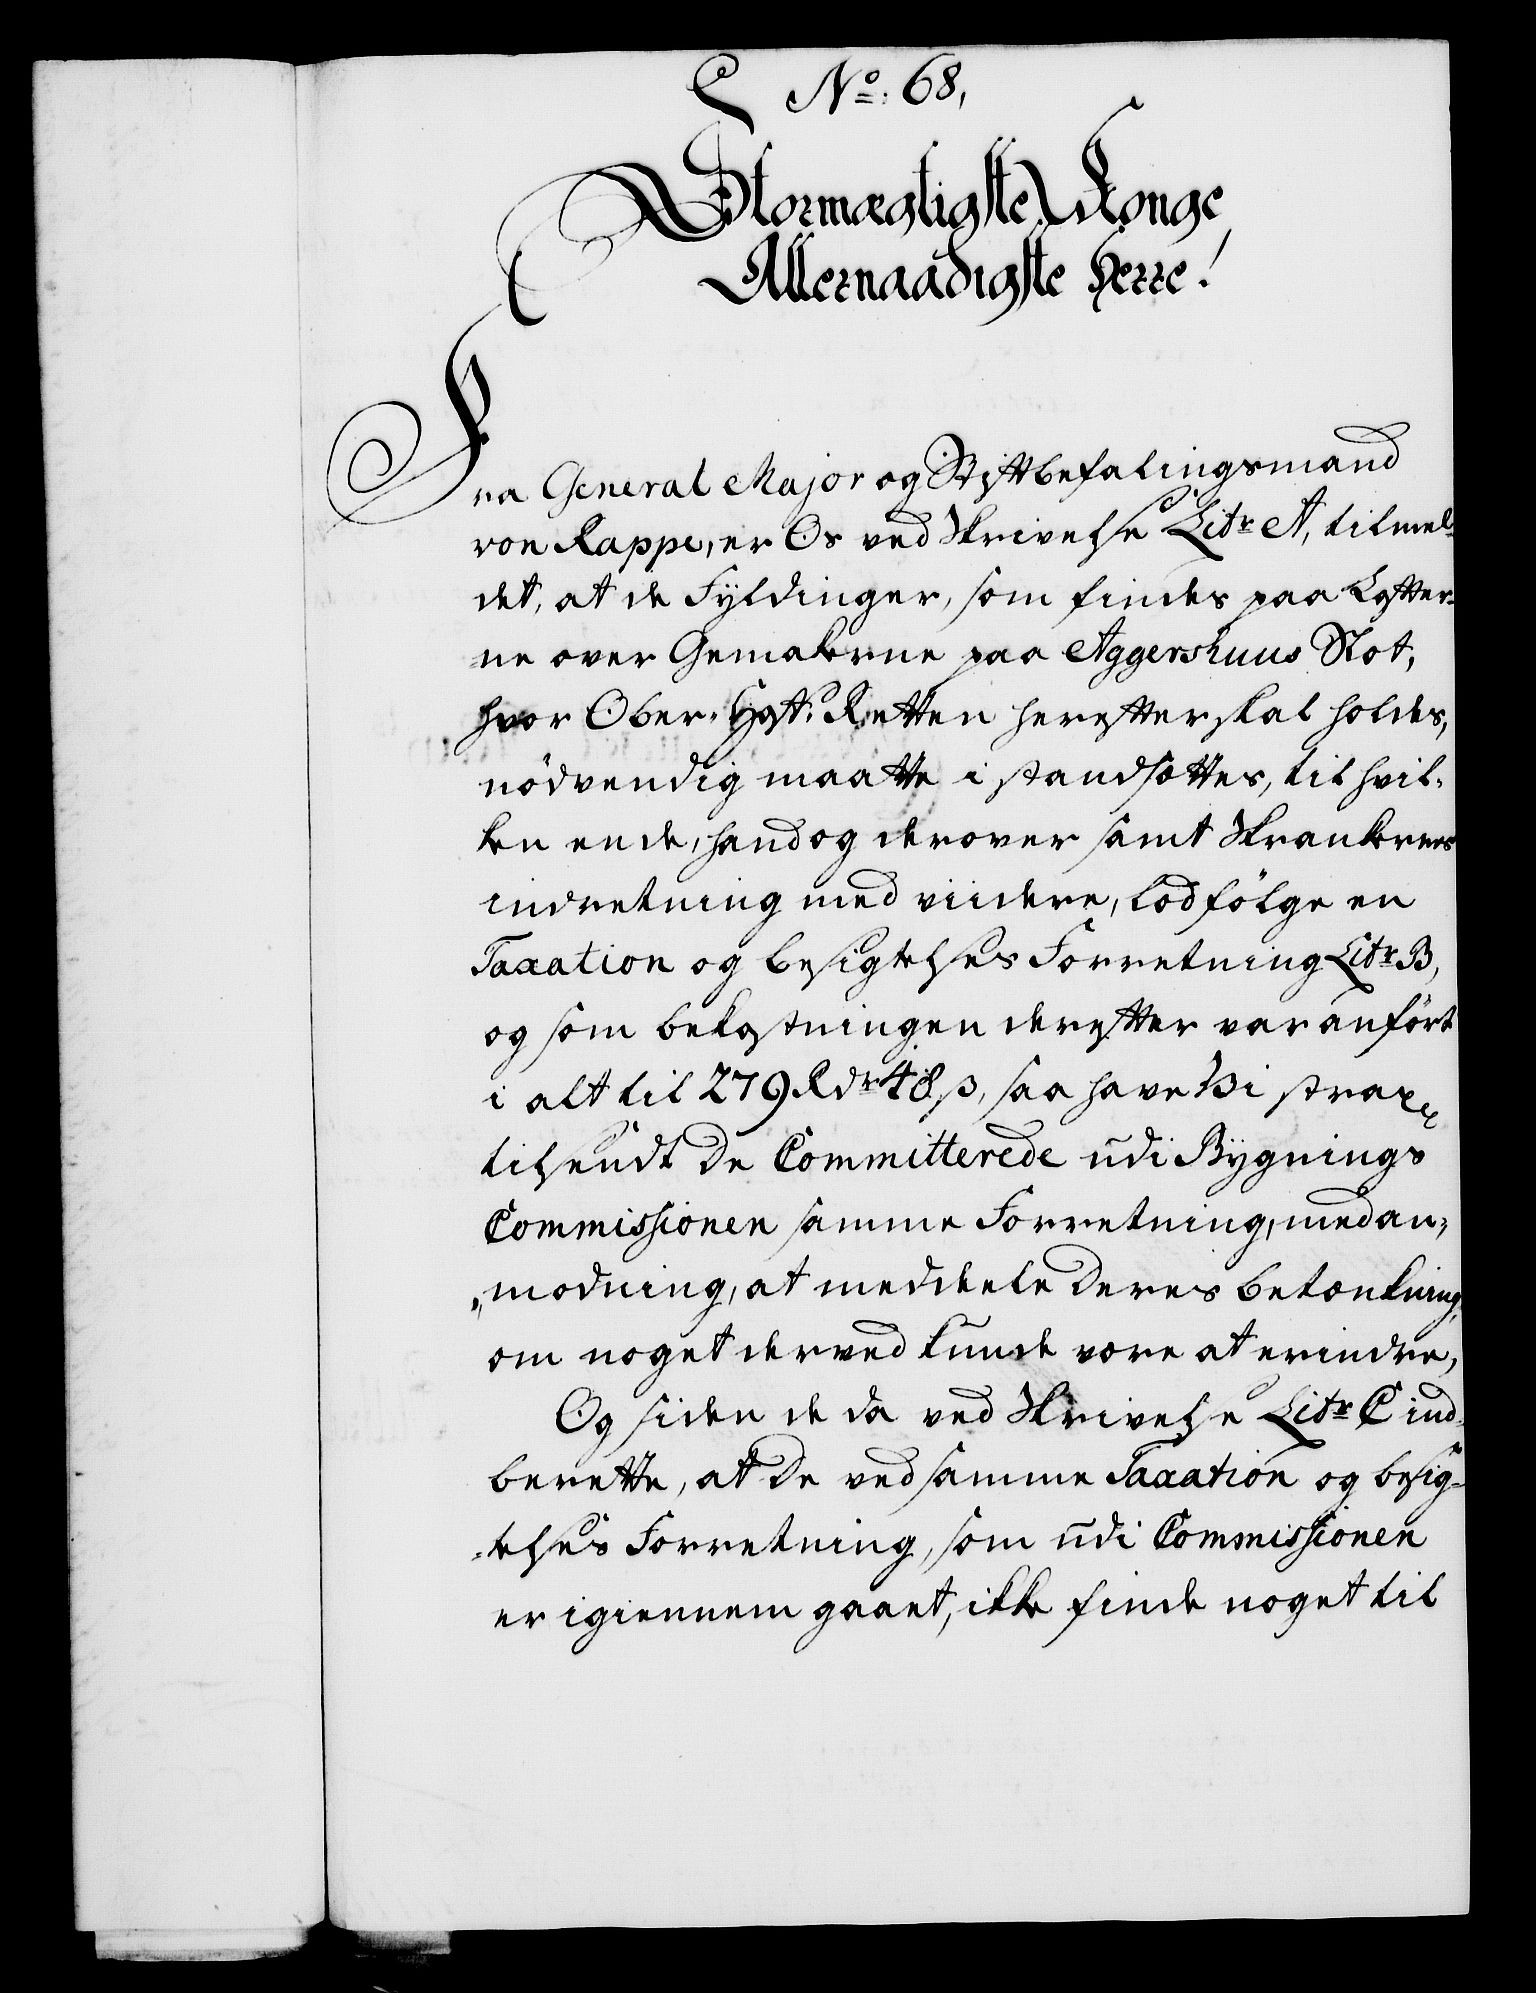 No: 68,
Stormægtigste Konge
Allernaadigste Herre!
Fra General Major og Stiftbefalingsmand
von Rappe, er Os ved Skrivelse Litr A, tilmel-
det, at de Fyldinger, som findes paa Lofter-
ne over Gemakerne paa Aggershuus Slot,
hvor Ober-Hof-Retten herefter skal holdes,
nödvendig maatte i standsættes, til hvil-
ken ende, hand og derover samt Skrankernes
indretning med viidere, lod fölge en
Taxation og besigtelses Forretning Litr B,
og som bekostningen derefter var anfört
i alt til 279 Rdr 48 ß, saa have Vi strax
tilsendt De Committerede udi Bygnings
Commissionen samme Forretning, med an-
modning, at meddeele Deres betænkning,
om noget derved kunde være at erindre,
Og siden de da ved Skrivelse Litr C ind-
berette, at De ved samme Taxation og besig-
telses Forretning, som udi Commissionen
er igiennem gaaet, ikke finde noget til